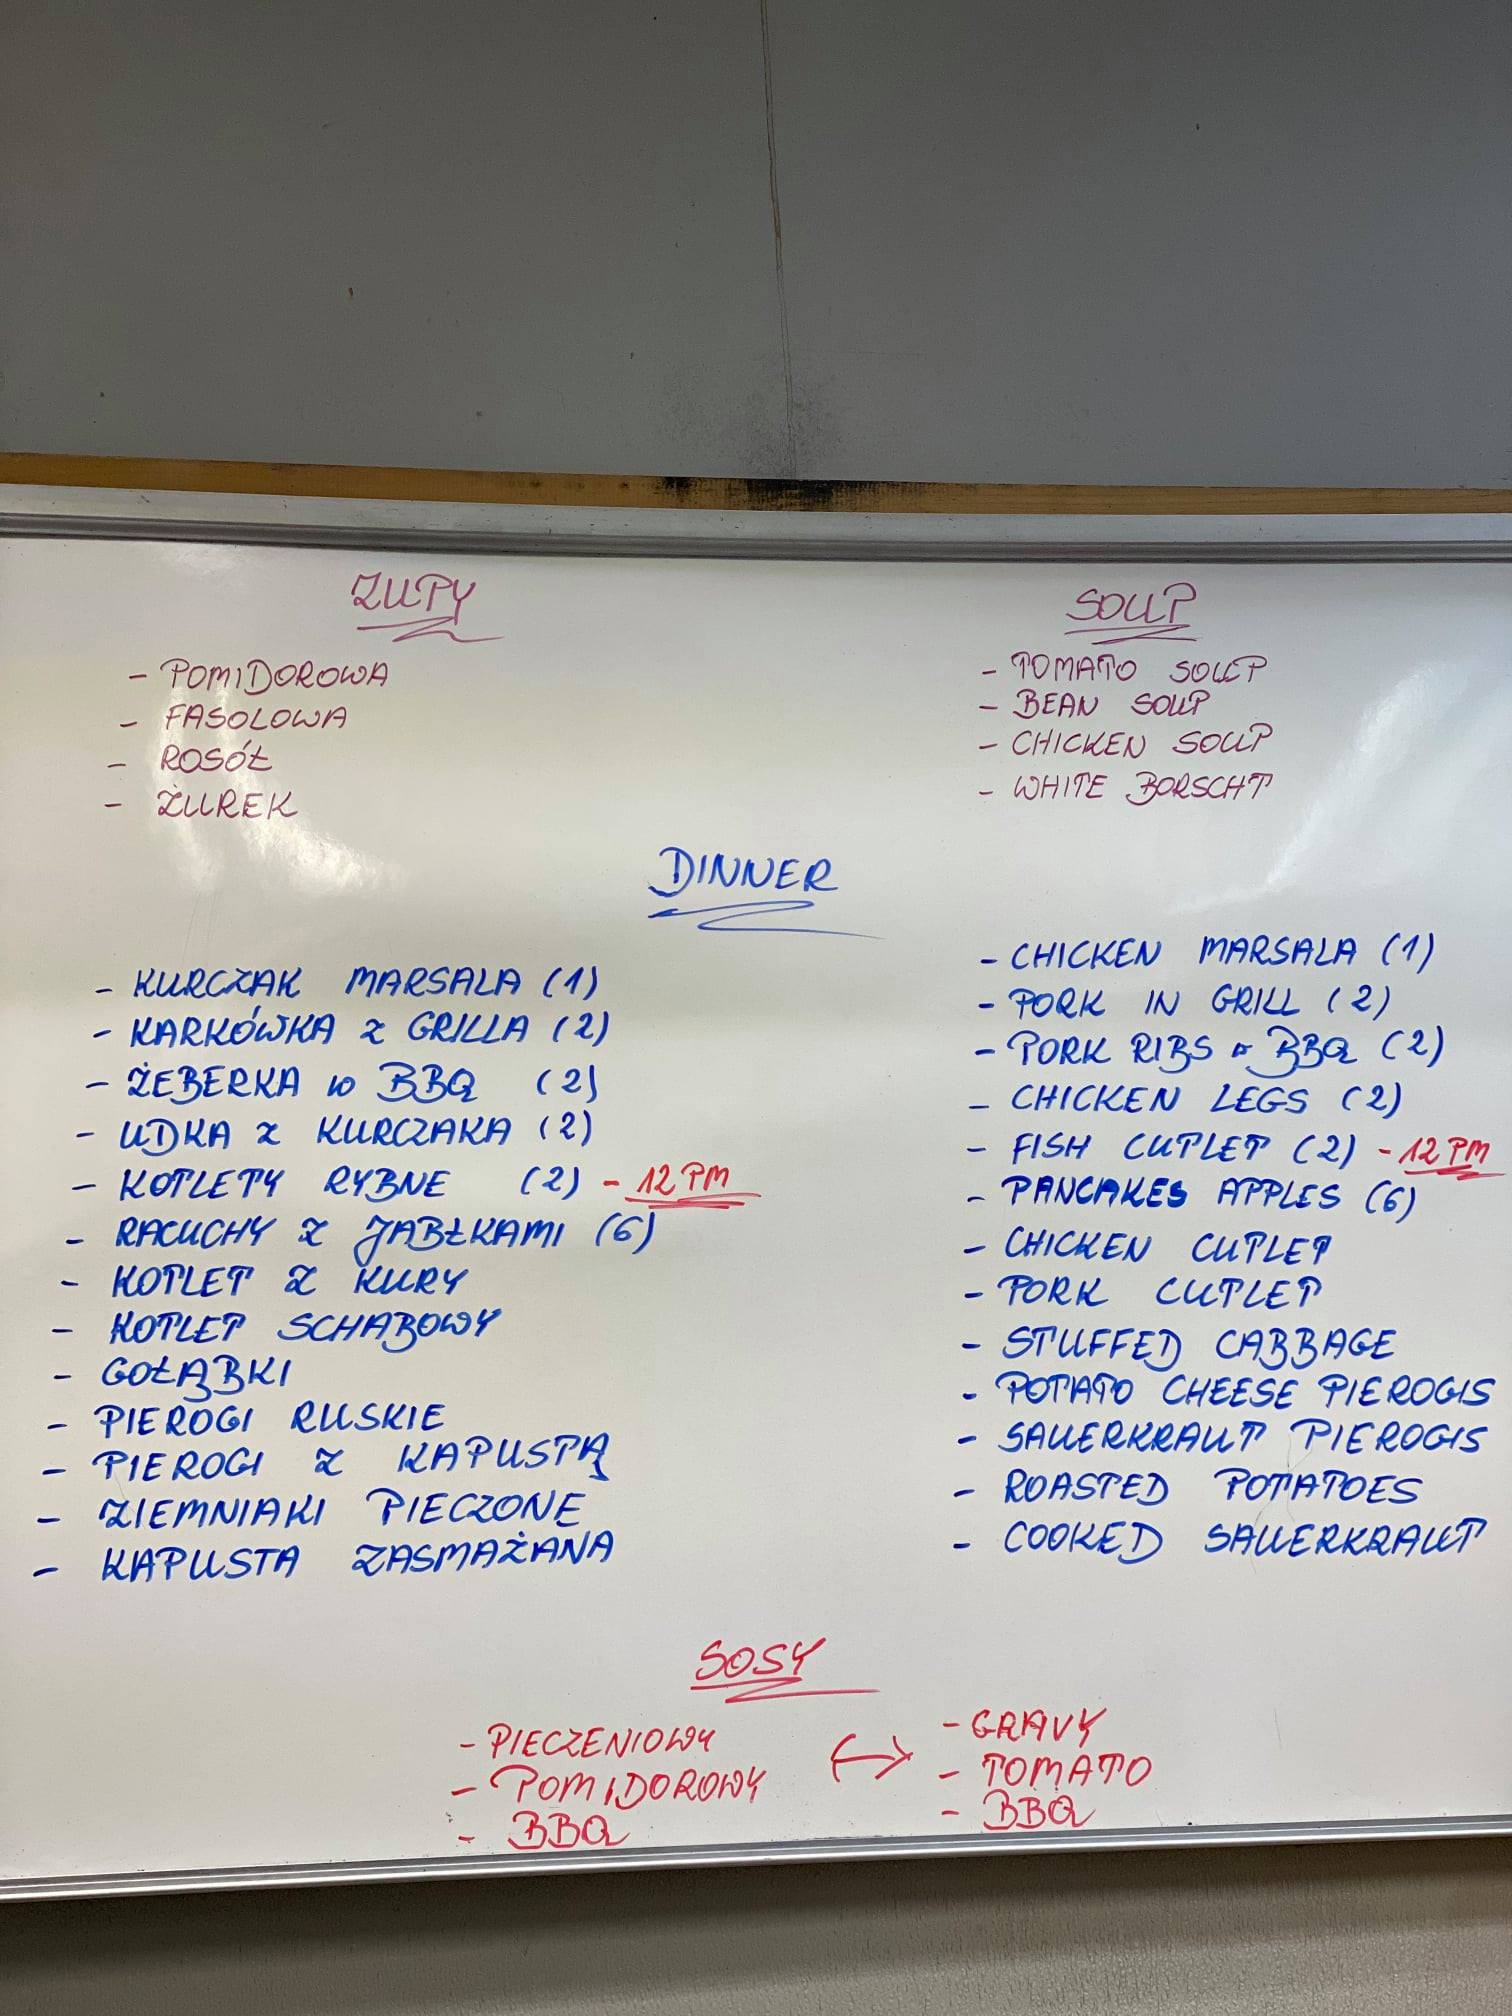 ZUPY
- POMIDOROWA
- FASOLOWA
- ROSÓŁ
- ŻUREK
SOUP
- TOMATO SOUP
- BEAN SOUP
- CHICKEN SOUP
- WHITE BORSCHT
DINNER
- KURCZAK MARSALA (1)
- KARKÓWKA Z GRILLA (2)
- ŻEBERKA W BBQ (2)
- UDKA Z KURCZAKA (2)
- KOTLETY RYBNE (2) - 12 PM
- RACUCHY Z JABŁKAMI (6)
- KOTLET Z KURY
- KOTLET SCHABOWY
- GOŁĄBKI
- PIEROGI RUSKIE
- PIEROGI Z KAPUSTĄ
- ZIEMNIAKI PIECZONE
- KAPUSTA ZASMAŻANA
- CHICKEN MARSALA (1)
- PORK IN GRILL (2)
- PORK RIBS BBQ (2)
- CHICKEN LEGS (2)
- FISH CUTLET (2) - 12 PM
- PANCAKES APPLES (6)
- CHICKEN CUTLET
- PORK CUTLET
- STUFFED CABBAGE
- POTATO CHEESE PIEROGIS
- SAUERKRAUT PIEROGIS
- ROASTED POTATOES
- COOKED SAUERKRAUT
SOSY
- PIECZENIOWY
- POMIDOROWY
- BBQ
- GRAVY
- TOMATO
- BBQ